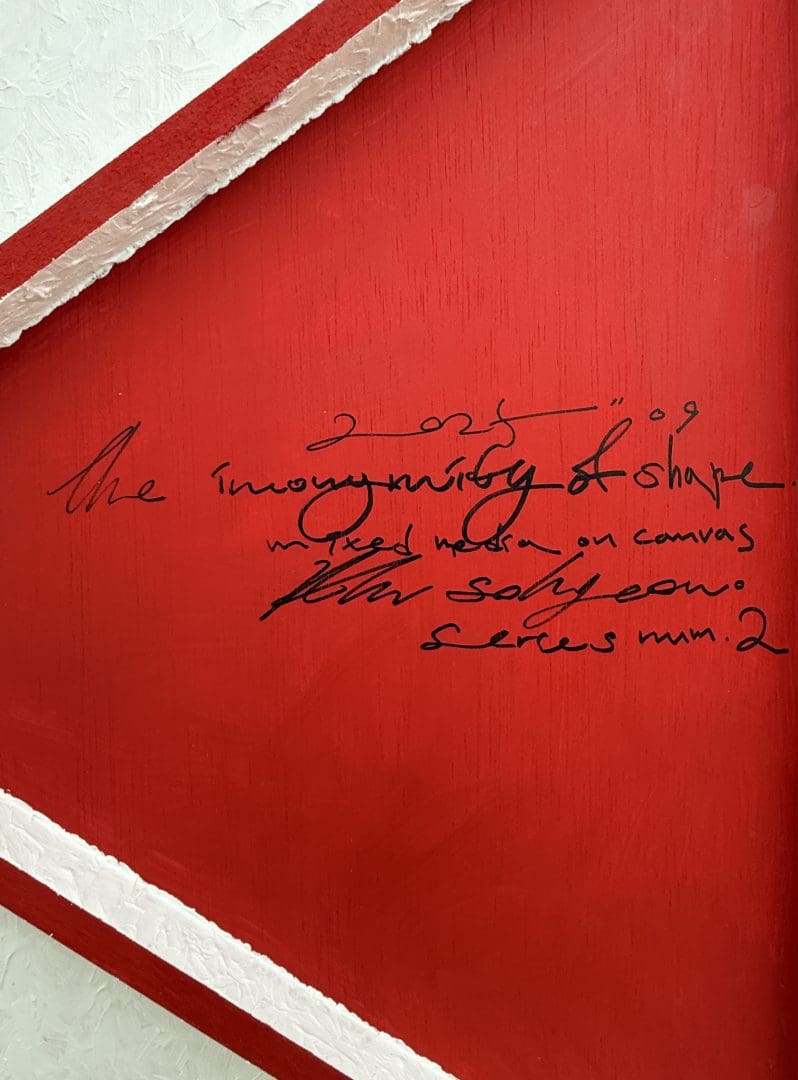 2025 " 09
the inonymity of shape.
mixed media on canvas
series num. 2